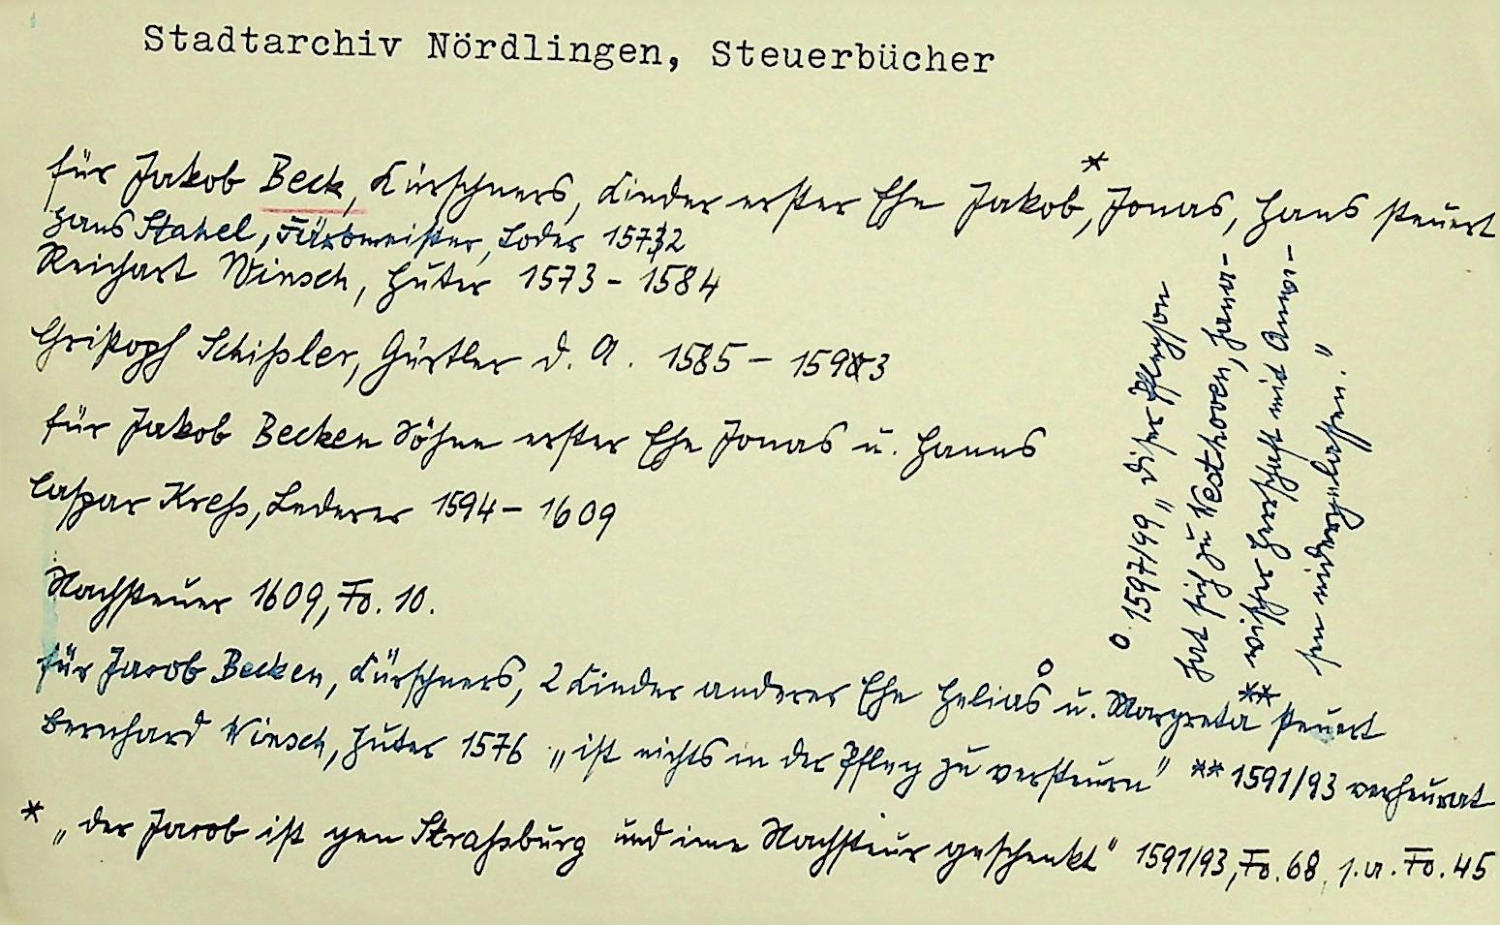 Stadtarchiv Nördlingen, Steuerbücher
für Jakob Beck, Kürschners, Kinder erster Ehe Jakob,* Jonas, Hans steuert
Hans Stahel, Färbmeister, Loder 1572
Reichart Winsch, Huter 1573 - 1584
Christoph Schißler, Gürtler d. A. 1585 - 1593
für Jakob Becken Söhne erster Ehe Jonas u. Hanns
Caspar Kreß, Lederer 1594 - 1609
Nachsteuer 1609, Fo. 10.
für Jacob Becken, Kürschners, 2 Kinder anderer Ehe Helias° u. Margreta** steuert
Bernhard Winsch, Huter 1576 „ist nichts in der Pfleg zu versteurn" ** 1591/93 verheurat
* „der Jacob ist gen Straßburg und ime Nachsteur geschenkt" 1591/93, Fo. 68, s.a. Fo. 45
° 1597/99 „diser Pflegson
hat sich zu Westhoven, Hana-
wischer Herrschaft mit Anwe-
sen nidergelassen."